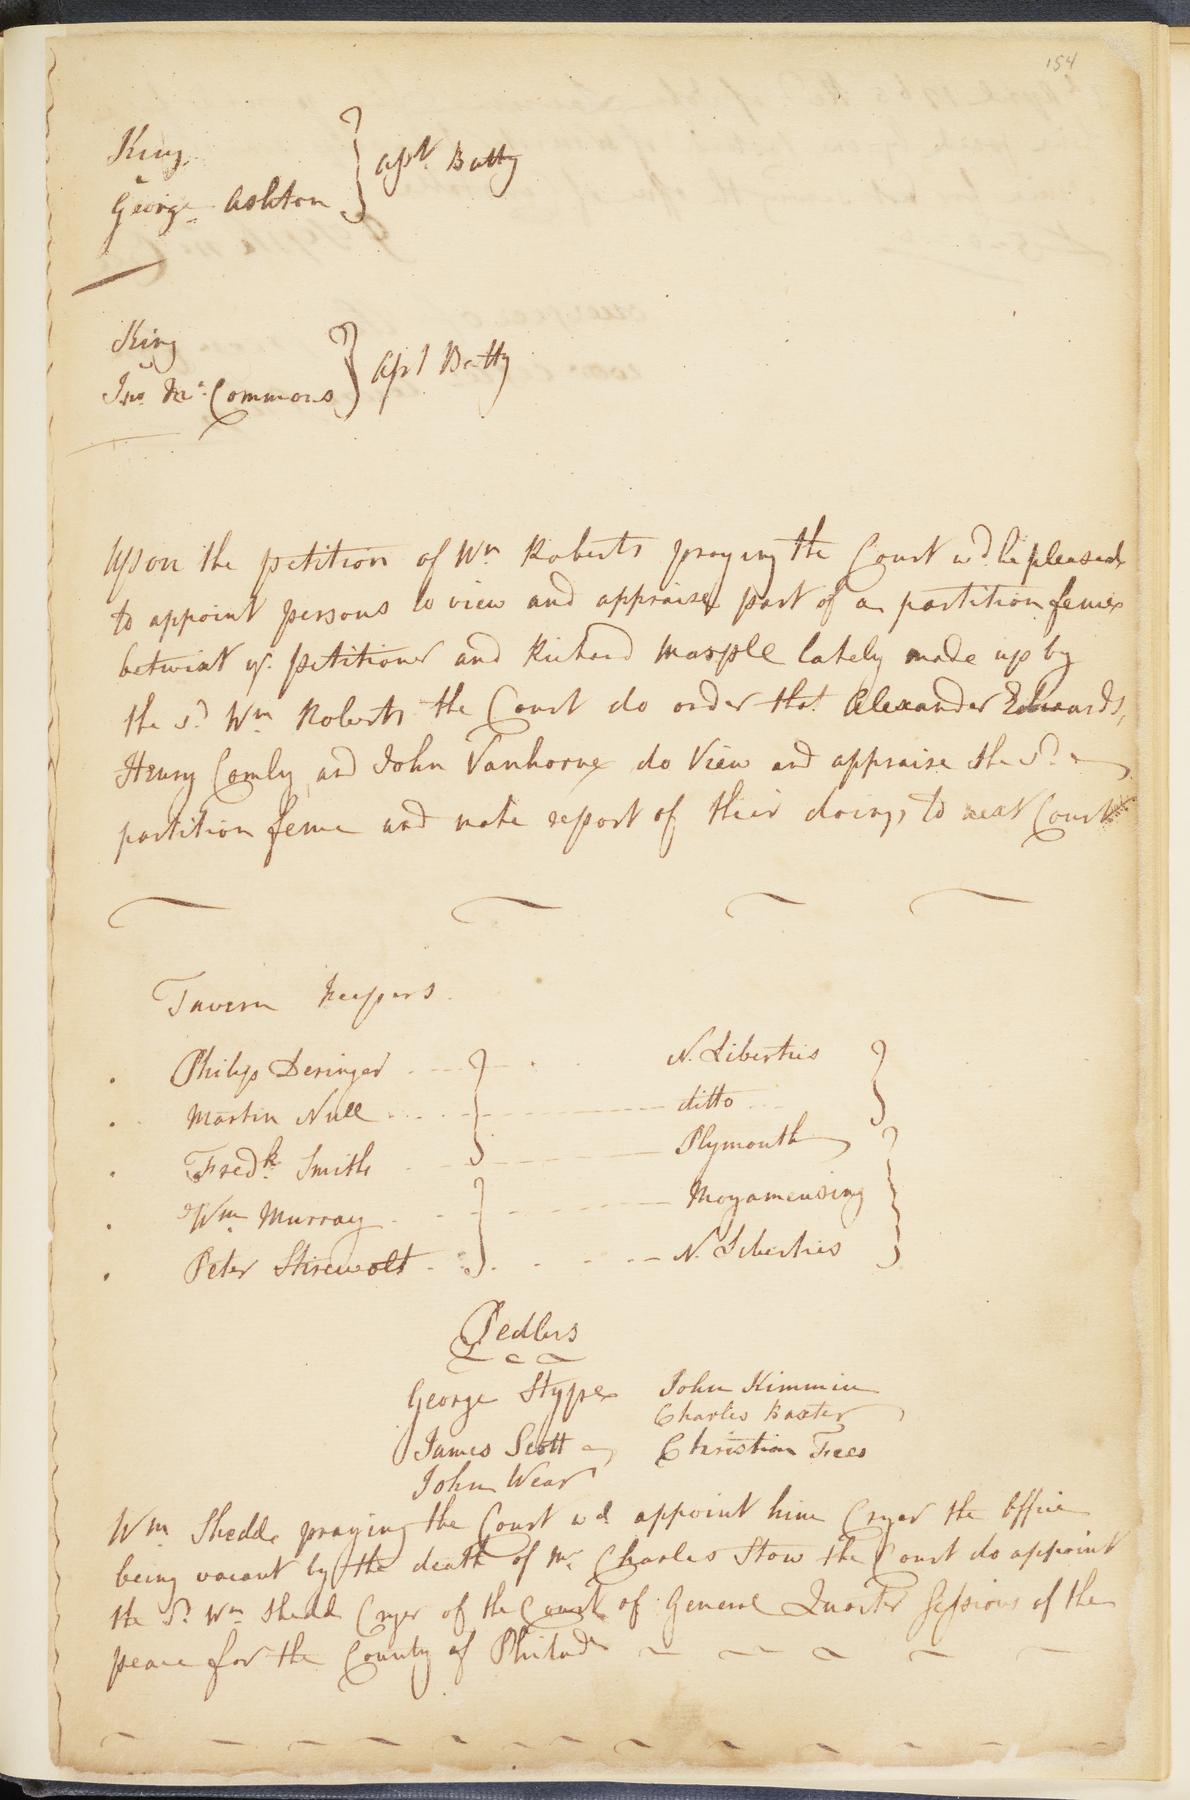 154
King
v
George Ashton } Ass.t & Batty
King
v
Jno. Mc.Commons } Ass.t & Batty
Upon the petition of Wm Roberts praying the Court wd. be pleased
to appoint persons to view and appraise part of a partition fence
betwixt yr. petitioner and Richard Marple lately made up by
the sd. Wm Roberts the Court do order that Alexander Edwards,
Henry Comly and John Vanhorne do View and appraise the sd.
partition fence and make report of their doings to next Court
Tavern keepers
Philip Deringer N. Liberties
Martin Null ditto
Fredk. Smith Plymouth
Wm Murray Moyamensing
Peter Stirewolt N. Liberties
Pedlers
George Stype John Kimmin
Charles Baxter
James Scott Christian Frees
John Wear
Wm Shedd praying the Court wd appoint him Cryer the Office
being vacant by the death of Mr. Charles Stow the Court do appoint
the sd. Wm Shedd Cryer of the Court of General Quarter Sessions of the
peace for the County of Philada